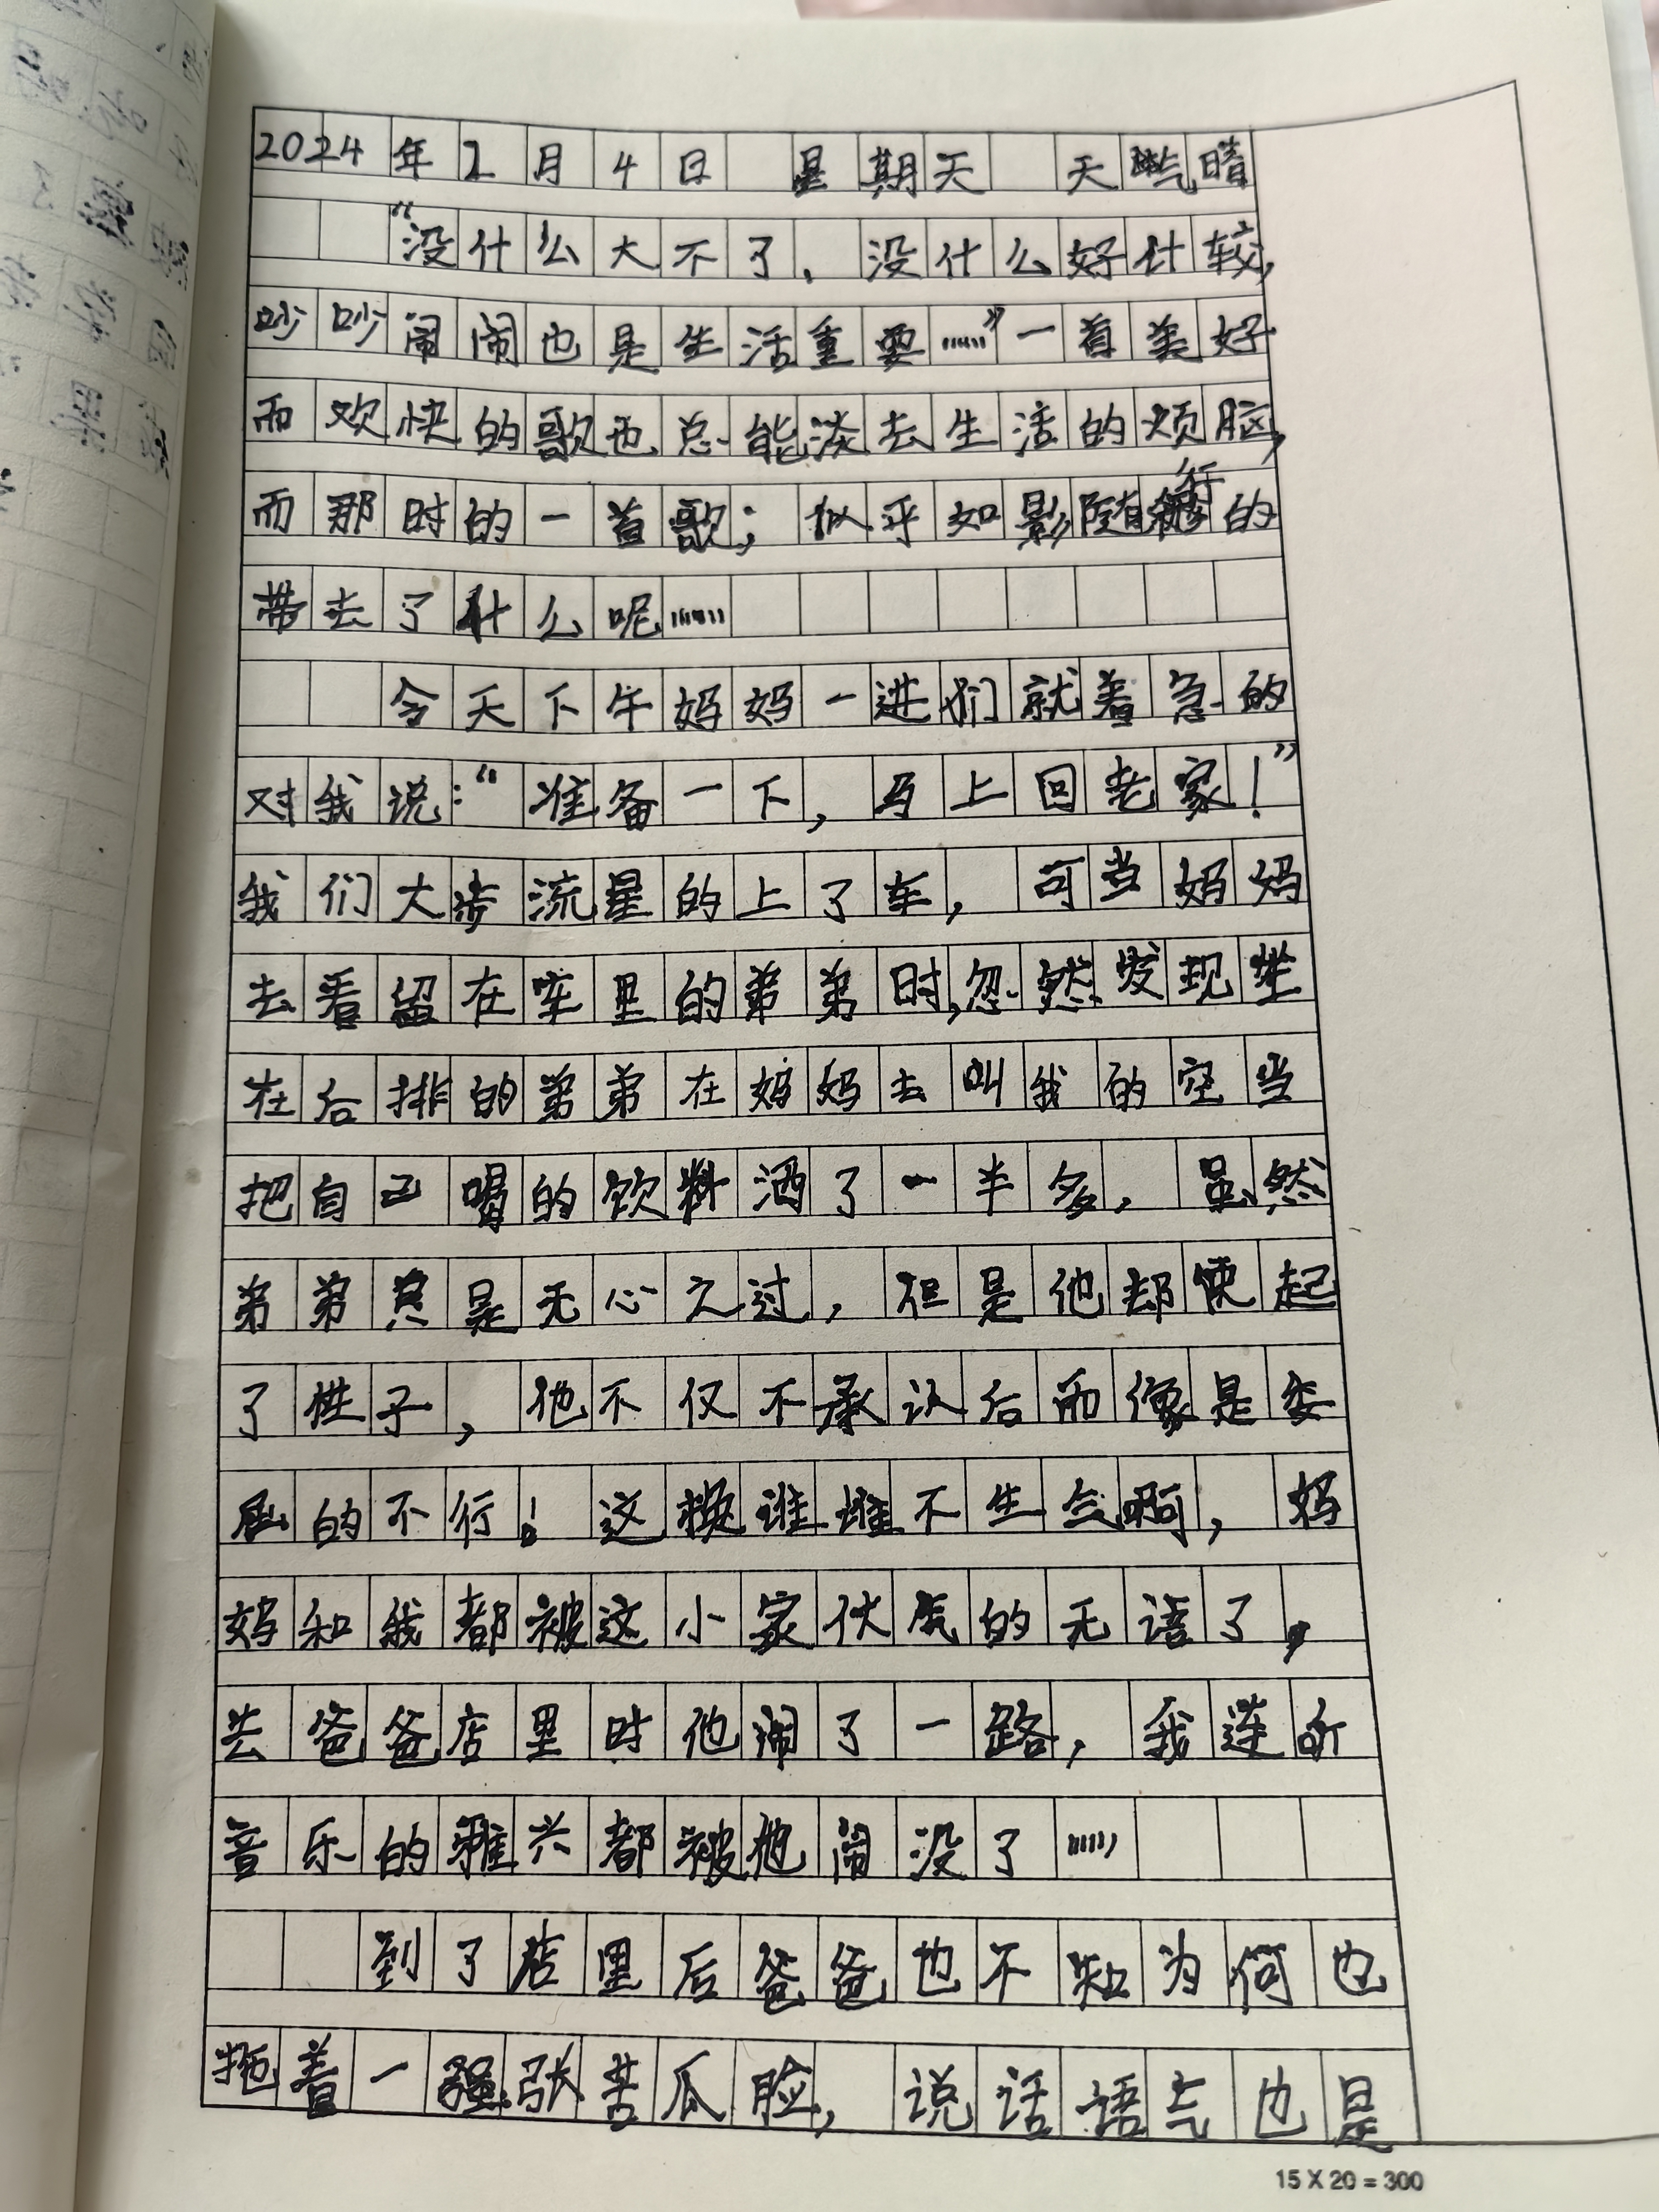 2024年2月4日 星期天 天气晴
“没什么大不了，没什么好计较，
吵吵闹闹也是生活重要……”一首美好
而欢快的歌也总能淡去生活的烦脑，
而那时的一首歌；似乎如影随行的
带去了什么呢……
今天下午妈妈一进们就着急的
对我说：“准备一下，马上回老家！”
我们大步流星的上了车，可当妈妈
去看留在车里的弟弟时，忽然发现坐
在后排的弟弟在妈妈去叫我的空当
把自己喝的饮料洒了一半多，虽然
弟弟只是无心之过，但是他却使起
了性子，他不仅不承认后而像是委
屈的不行！这换谁谁不生气啊，妈
妈和我都被这小家伙气的无语了，
去爸爸店里时他闹了一路，我连听
音乐的雅兴都被他闹没了……
到了店里后爸爸也不知为何也
拖着一张苦瓜脸，说话语气也是
15 X 20 = 300